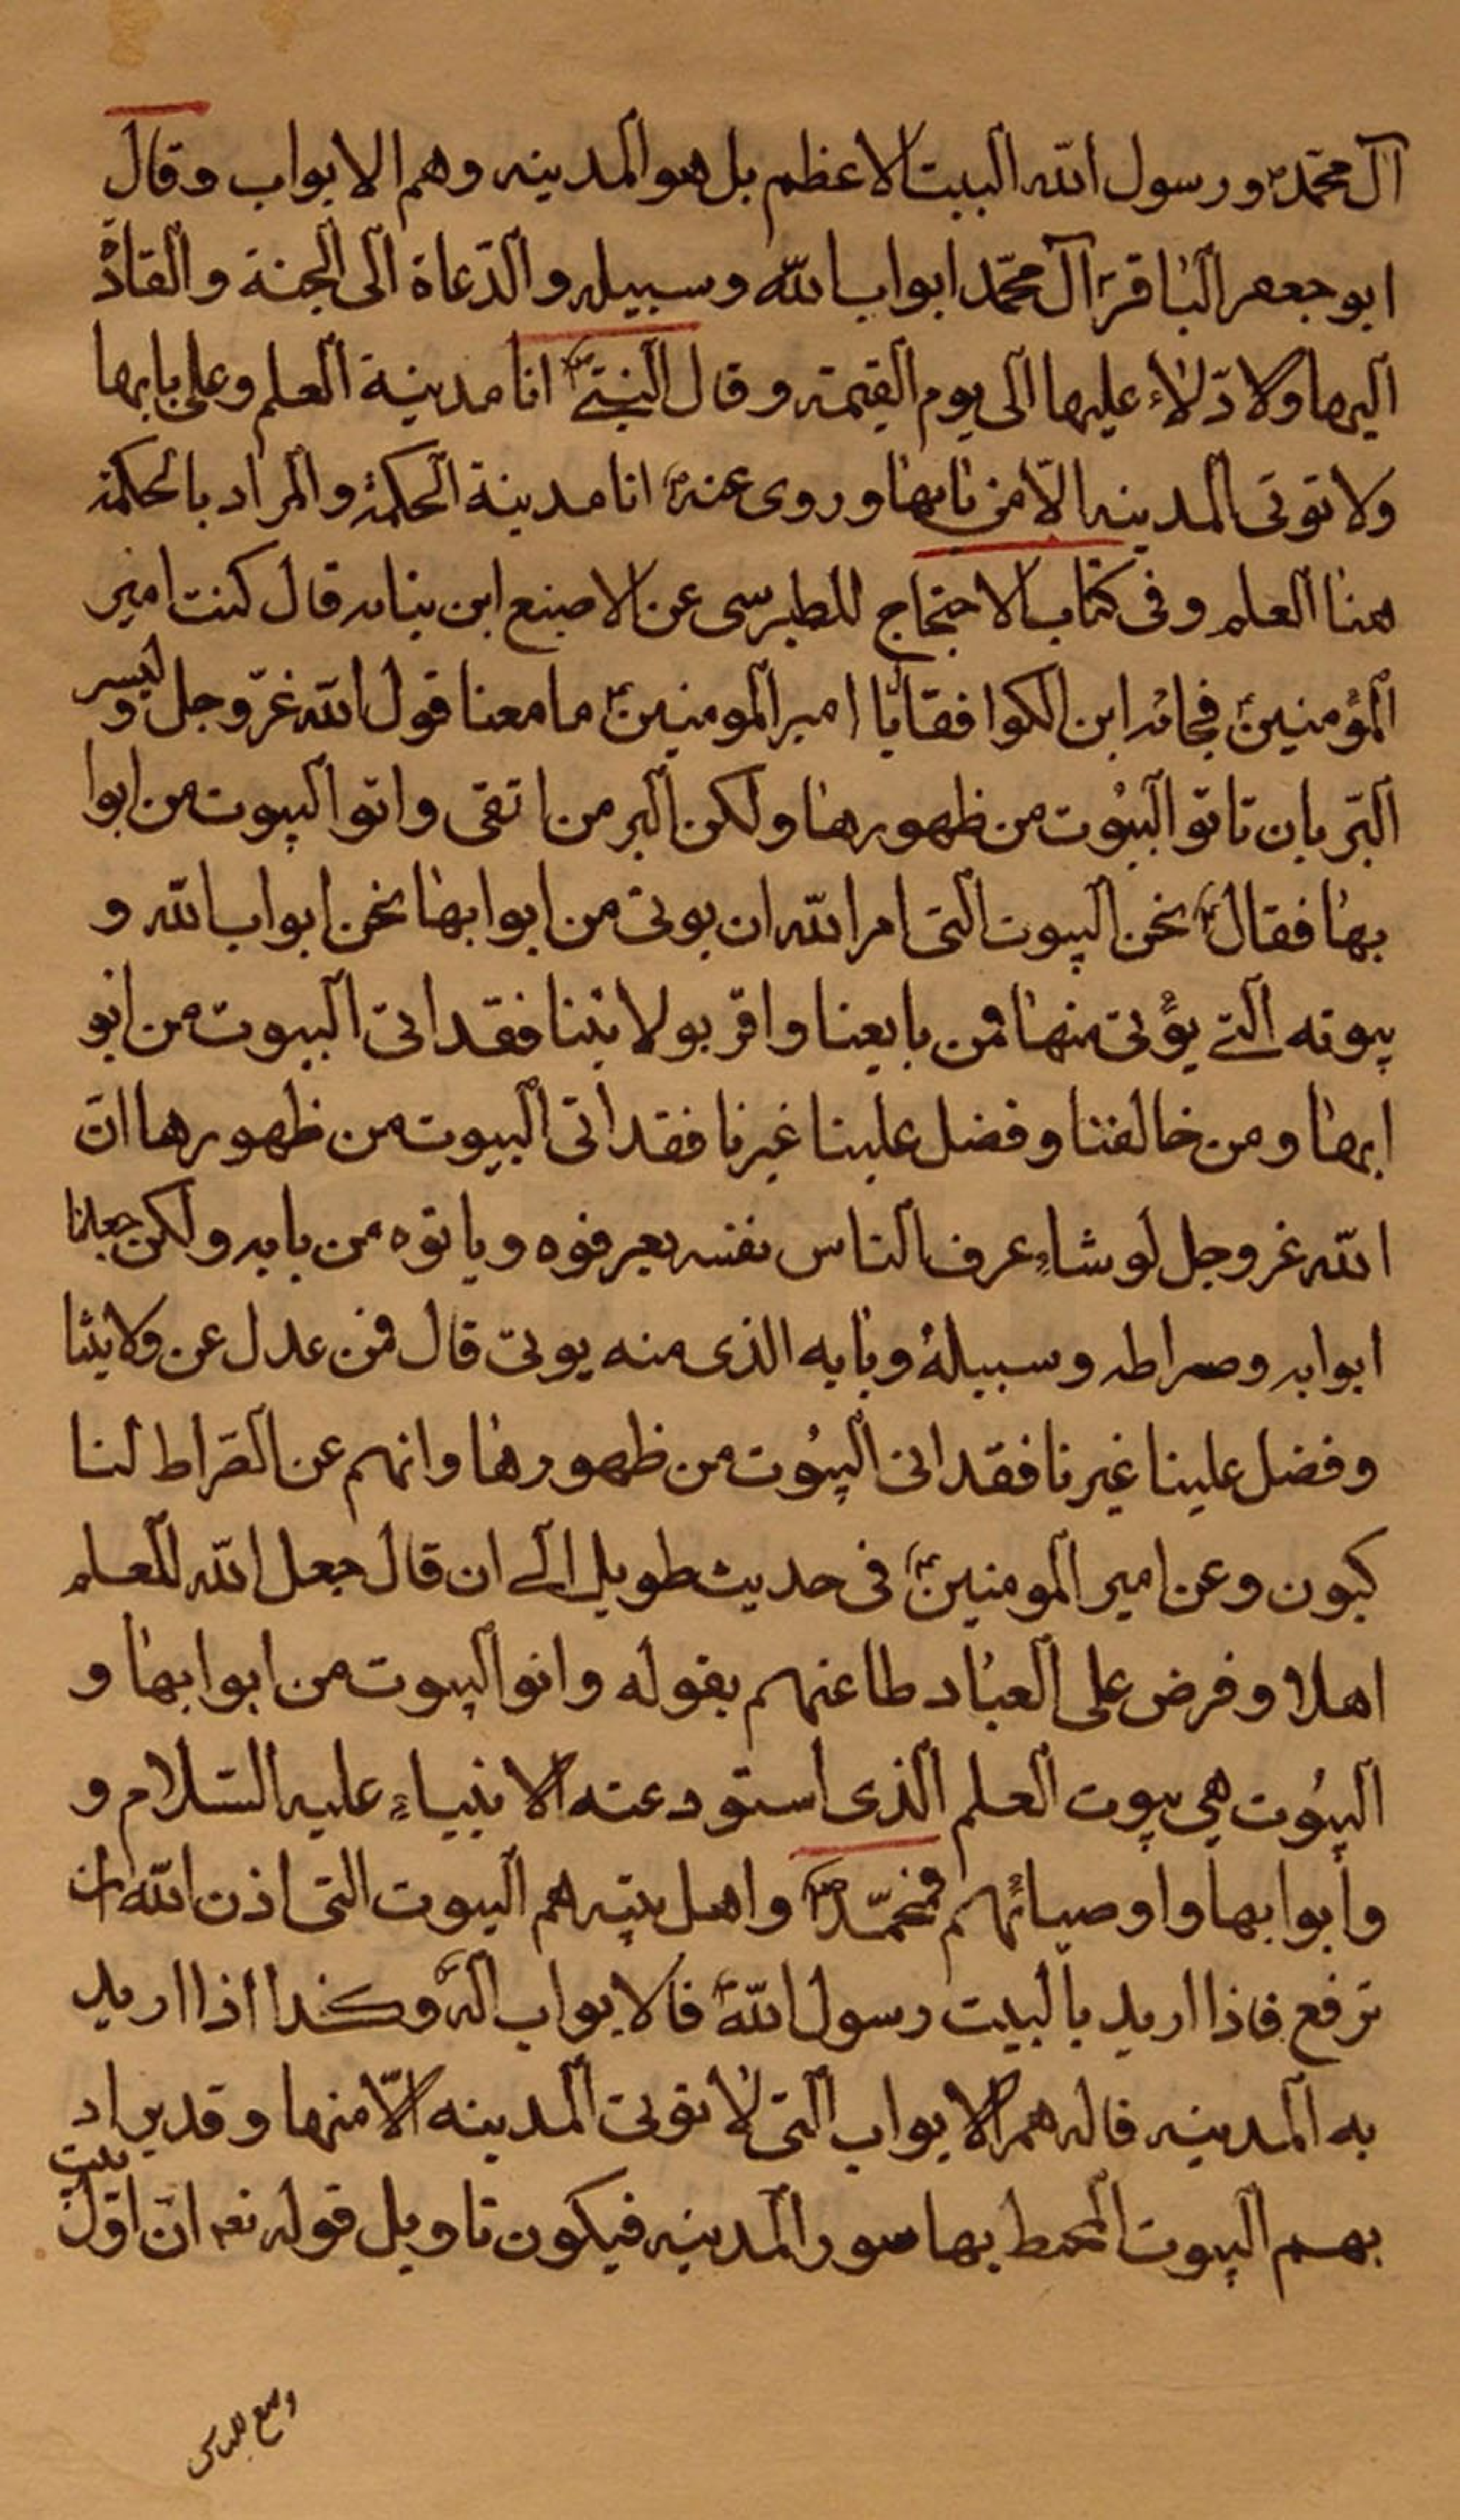 آل محمّد ورسول الله البيت الاعظم بل هو المدينه وهم الابواب وقال
ابو جعفر الباقر آل محمّد ابواب الله وسبيله والدّعاة الى الجنة والقادة
اليها ولادّلاء عليها الى يوم القيمة وقال النبىّ انا مدينة العلم وعلى بابها
ولا توتى المدينه الّا من بابها وروى عنه انا مدينة الحكمة والمراد بالحكمة
هنا العلم وفى كتاب الاحتجاج للطبرسى عن الاصبغ ابن نباته قال كنت امير
المؤمنين فجائه ابن الكوا فقال يا امير المومنين ما معنا قول الله عزّ وجل وليس
البّر بان تاتو البيُوت من ظهورها ولكن البر من اتقى واتو البيوت من ابوا
بها فقال نحن البيوت التى امر الله ان يوتى من ابوابها نحن ابواب الله و
بيوته التى يؤتى منها فمن بايعنا واقر بولايتنا فقد اتى البيوت من ابو
ابها ومن خالفنا وفضل علينا غيرنا فقد اتى البيوت من ظهورها انّ
الله عز وجل لو شاء عرف الناس نفسه يعرفوه وياتوه من بابه ولكن جعلنا
ابوابه وصراطه وسبيلهُ وبابه الذى منه يوتى قال فمن عدل عن ولايتنا
وفضل علينا غيرنا فقد اتى البيُوت من ظهورها وانهم عن الصّراط لنا
كبون وعن امير المومنين فى حديث طويل الى ان قال جعل الله للعلم
اهلا وفرض على العباد طاعتهم بقوله واتو البيوت من ابوابها و
البيُوت هى بيوت العلم الذى استودعته الانبياء عليه السّلام و
وابوابها واوصيائهم فمحمّد واهل بيته هم البيوت التى اذن الله ان
ترفع فاذا اريد بالبيت رسول الله فالابواب اله وكذا اذا اريد
به المدينه فاله هم الابواب التى لا توتى المدينه الّا منها وقد يراد
بهم البيوت المحيط بها سور المدينه فيكون تاويل قوله تعـ انّ اوّل بيت
وضع للناس